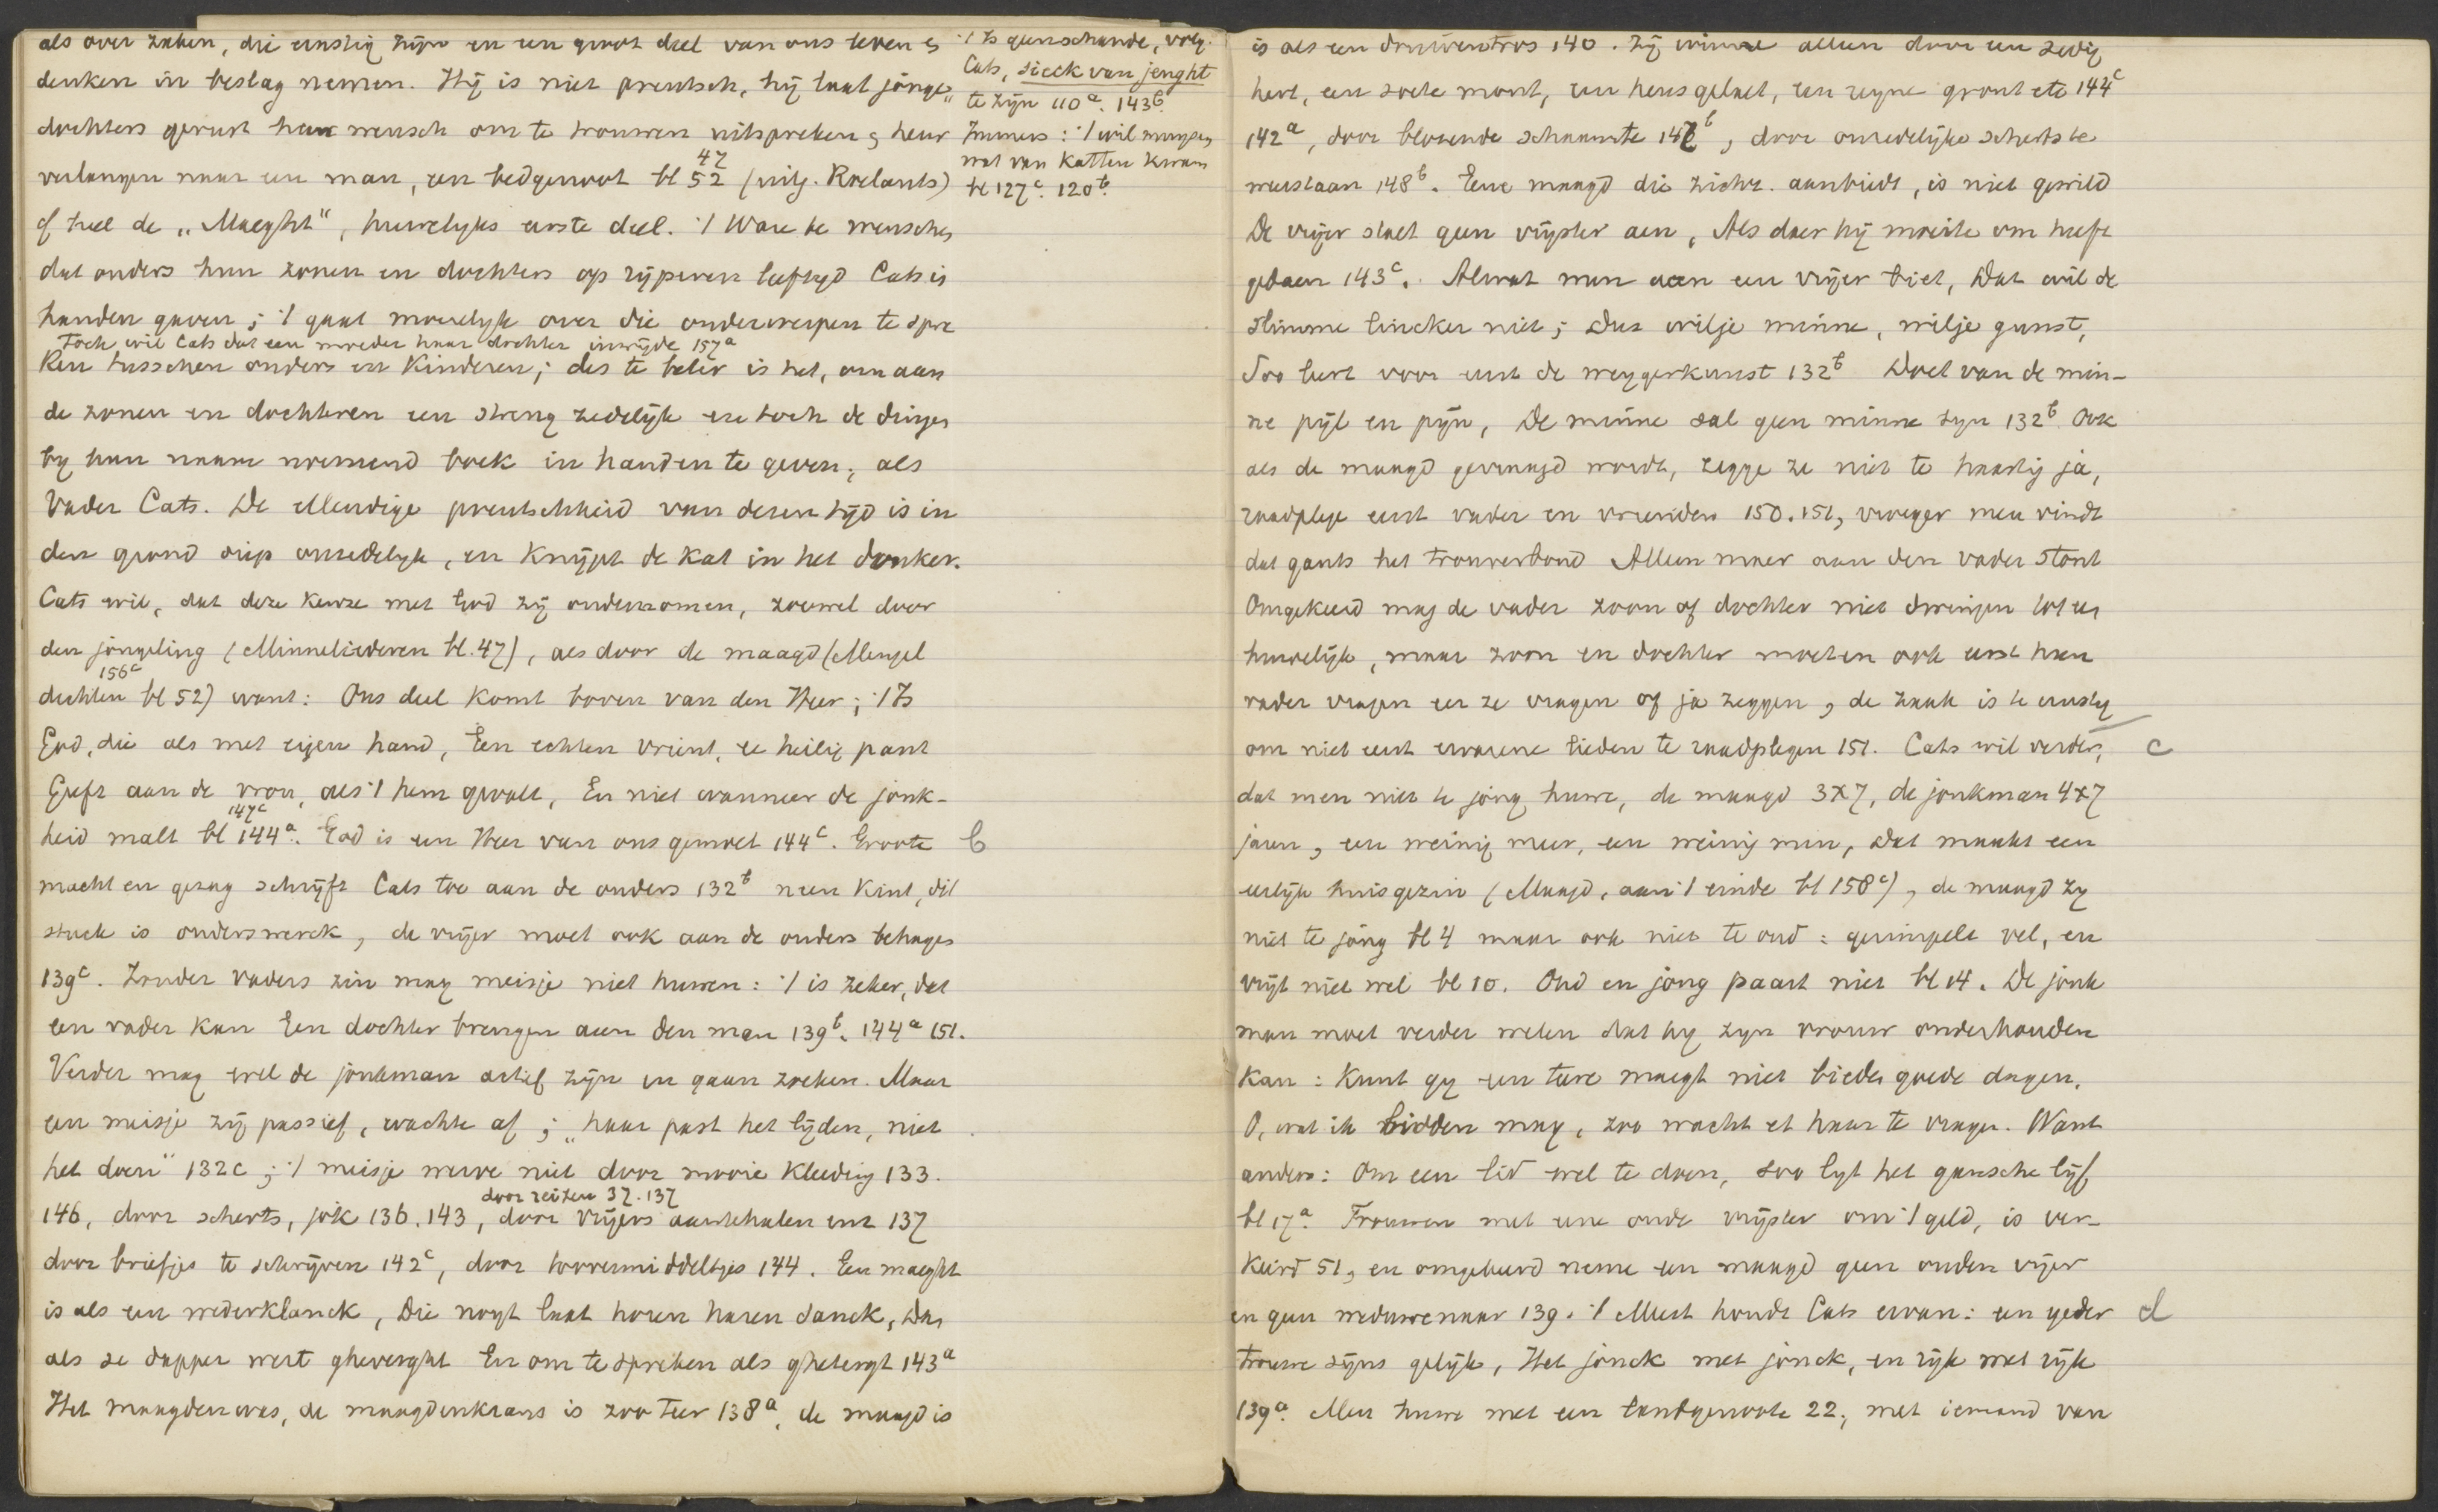 als over zaken, die ernstig zijn en een groot deel van ons leven &
denken in beslag nemen. Hij is niet preutsch, hij laat jonge
dochters gerust haar wensch om te trouwen uitspreken, heur
verlangen naar een man, een bedgenoot bl 52 (uitg. Roelants)
47
of heel de „Maeght", huwelyks eerste deel. 't Ware te wenschen
dat ouders hun zonen en dochters op rijperen leeftijd Cats in
handen gaven; 't gaat moeielyk over die onderwerpen te spre
Toch wil Cats dat een moeder haar dochter inwijde 157a
ken tusschen ouders en kinderen; des te beter is het, om aan
de zonen en dochteren een streng zedelijk en toch de dingen
by hun naam noemend boek in handen te geven, als
Vader Cats. De ellendige preutschheid van dezen tijd is in
den grond diep onzedelyk, en knijpt de kat in het donker.
Cats wil, dat deze keuze met God zij ondernomen, zoowel door
den jongeling (Minneliederen bl. 47), als door de maagd (Mengel
156c
dichten bl 52) want: Ons deel komt boven van den Heer; 't Is
God, die als met eigen hand, Een echten vrient, ee heilig pant
Geeft aan de vrou, als 't hem gevalt, En niet wanneer de jonk-
147c
heid malt bl 144a. God is een Heer van ons gemoet 144c. Groote b
macht en gezag schrijft Cats toe aan de ouders 132b neen kint, dit
stuck is ouderswerck, de vrijer moet ook aan de ouders behagen
139c. Zonder vaders zin mag meisje niet huwen: 't is zeker, dat
een vader kan Een dochter brengen aen den man 139b. 144a 151.
Verder mag wel de jonkman actief zijn en gaan zoeken. Maar
een meisje zij passief, wachte af; „haar past het lijden, niet
het doen" 132c; 't meisje werve niet door mooie kleeding 133.
door reizen 37. 137
146, door scherts, jok 136. 143, door vrijers aantehalen enz 137
door briefjes te schrijven 142c, door toovermiddeltjes 144. Een maeght
is als een wederklanck, Die noyt laat horen haren sanck, Dan
als se dapper wert gheverght En om te spreken als ghetergt 143a
Het maagdenwas, de maagdenkrans is zoo teer 138a, de maagd is
't Is geen schande, volg.
Cats, sieck van jeught
te zijn 110a. 143b.
Immers: 't wil muysen
wat van katten kwam
bl 127c. 120b.
is als een druiventros 140. Zij winne alleen door een zedig
hert, een soete mont, een heus gelaet, een reyne gront etc 144c
142a, door blozende schaamte 147b, door onzedelijke scherts te
weerstaan 148b. Eene maagd die zichz. aanbiedt, is niet gewild
De vrijer slaet geen vrijster aen, Als daer hij moeite om heeft
gedaen 143c. Alwat men aen een vrijer biet, Dat wil de
slimme lincker niet; Dus wilje minne, wilje gunst,
Soo leert voor eerst de weygerkunst 132b Doet van de min-
ne pijl en pijn, De minne sal geen minne syn 132b. Ook
als de maagd gevraagd wordt, zegge ze niet te haastig ja,
raadplege eerst vader en vrienden 150. 151, vroeger men vindt
dat gants het trouverbond Alleen maer aan den vader stont
Omgekeerd mag de vader zoon of dochter niet dwingen tot een
huwelijk, maar zoon en dochter moeten ook eerst hun
vader vragen eer ze vragen of ja zeggen, de zaak is te ernstig
om niet eerst ervarene lieden te raadplegen 151. Cats wil verder, c
dat men niet te jong huwe, de maagd 3x7, de jonkman 4x7
jaren, een weinig meer, een weinig min, Dat maakt een
eerlijk huisgezin (Maagd, aan 't einde bl 158c), de maagd zy
niet te jong bl 4 maar ook niet te oud: gerimpelt vel, en
vrijt niet wel bl 10. Oud en jong paart niet bl 14. De jonk
man moet verder weten dat hij zijn vrouw onderhouden
kan: kunt gy een teere maegt niet bieden goede dagen,
O, wat ik bidden mag, zoo wacht et haar te vragen. Want
anders: Om een lid wel te doen, soo lyt het gansche lijf
bl 17a. Trouwen met eene oude vrijster om 't geld, is ver-
keerd 51, en omgekeerd neme een maagd geen ouden vrijer
en geen weduwenaar 139. 't Meest houdt Cats ervan: een yeder d
trouwe sijns gelijk, Het jonck met jonck, en rijk met rijk
139a. Men huwe met een landgenoote 22, met iemand van